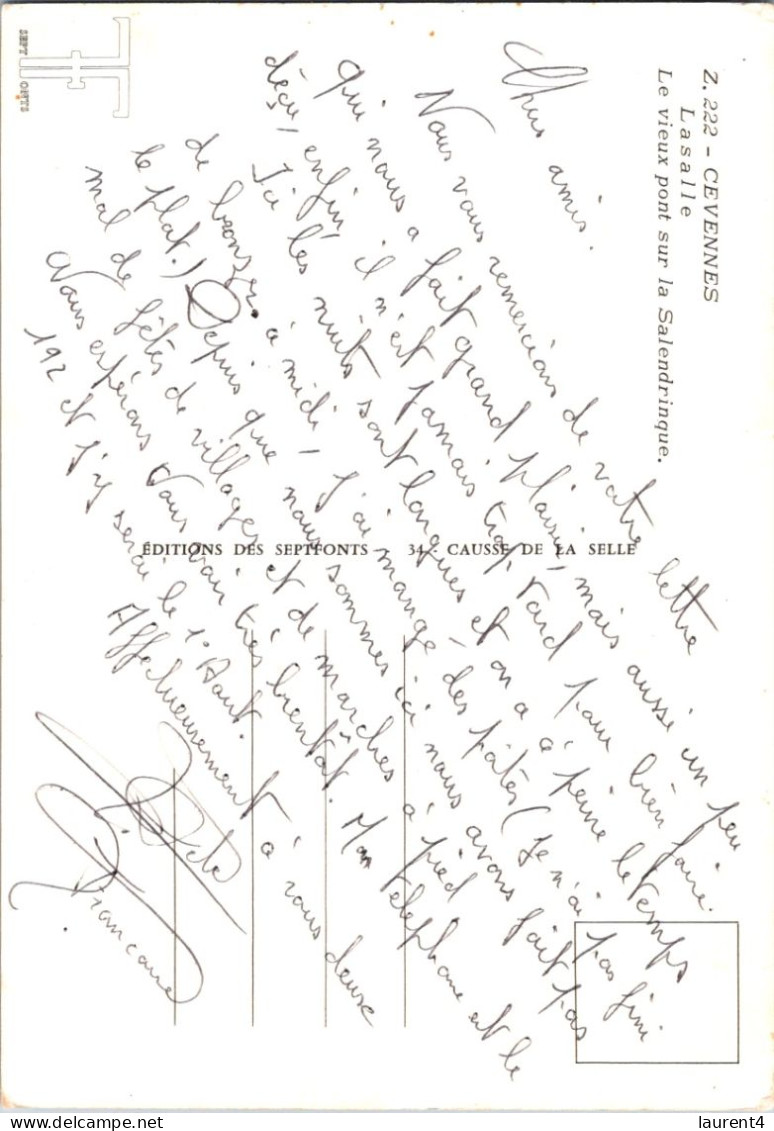 Z. 222 - CEVENNES
Lasalle
Le vieux pont sur la Salendrinque.
SEPT FONTS
ÉDITIONS DES SEPTFONTS - 34 - CAUSSE DE LA SELLE
Chers amis.
Nous vous remercions de votre lettre
qui nous a fait grand plaisir, mais aussi un peu
déçu, enfin, il n'est jamais trop tard pour bien faire.
Ici les nuits sont longues et on a à peine le temps
de bronzer. à midi, j'ai mangé des pâtes (Je n'ai pas fini
le plat.) Depuis que nous sommes ici nous avons fait pas
mal de fêtes de villages et de marches à pied
Nous espérons vous voir très bientôt. Mon téléphone est le
192 et j'y serai le 1° Aout.
Affectueusement à vous deux
laurent4
www.delcampe.net